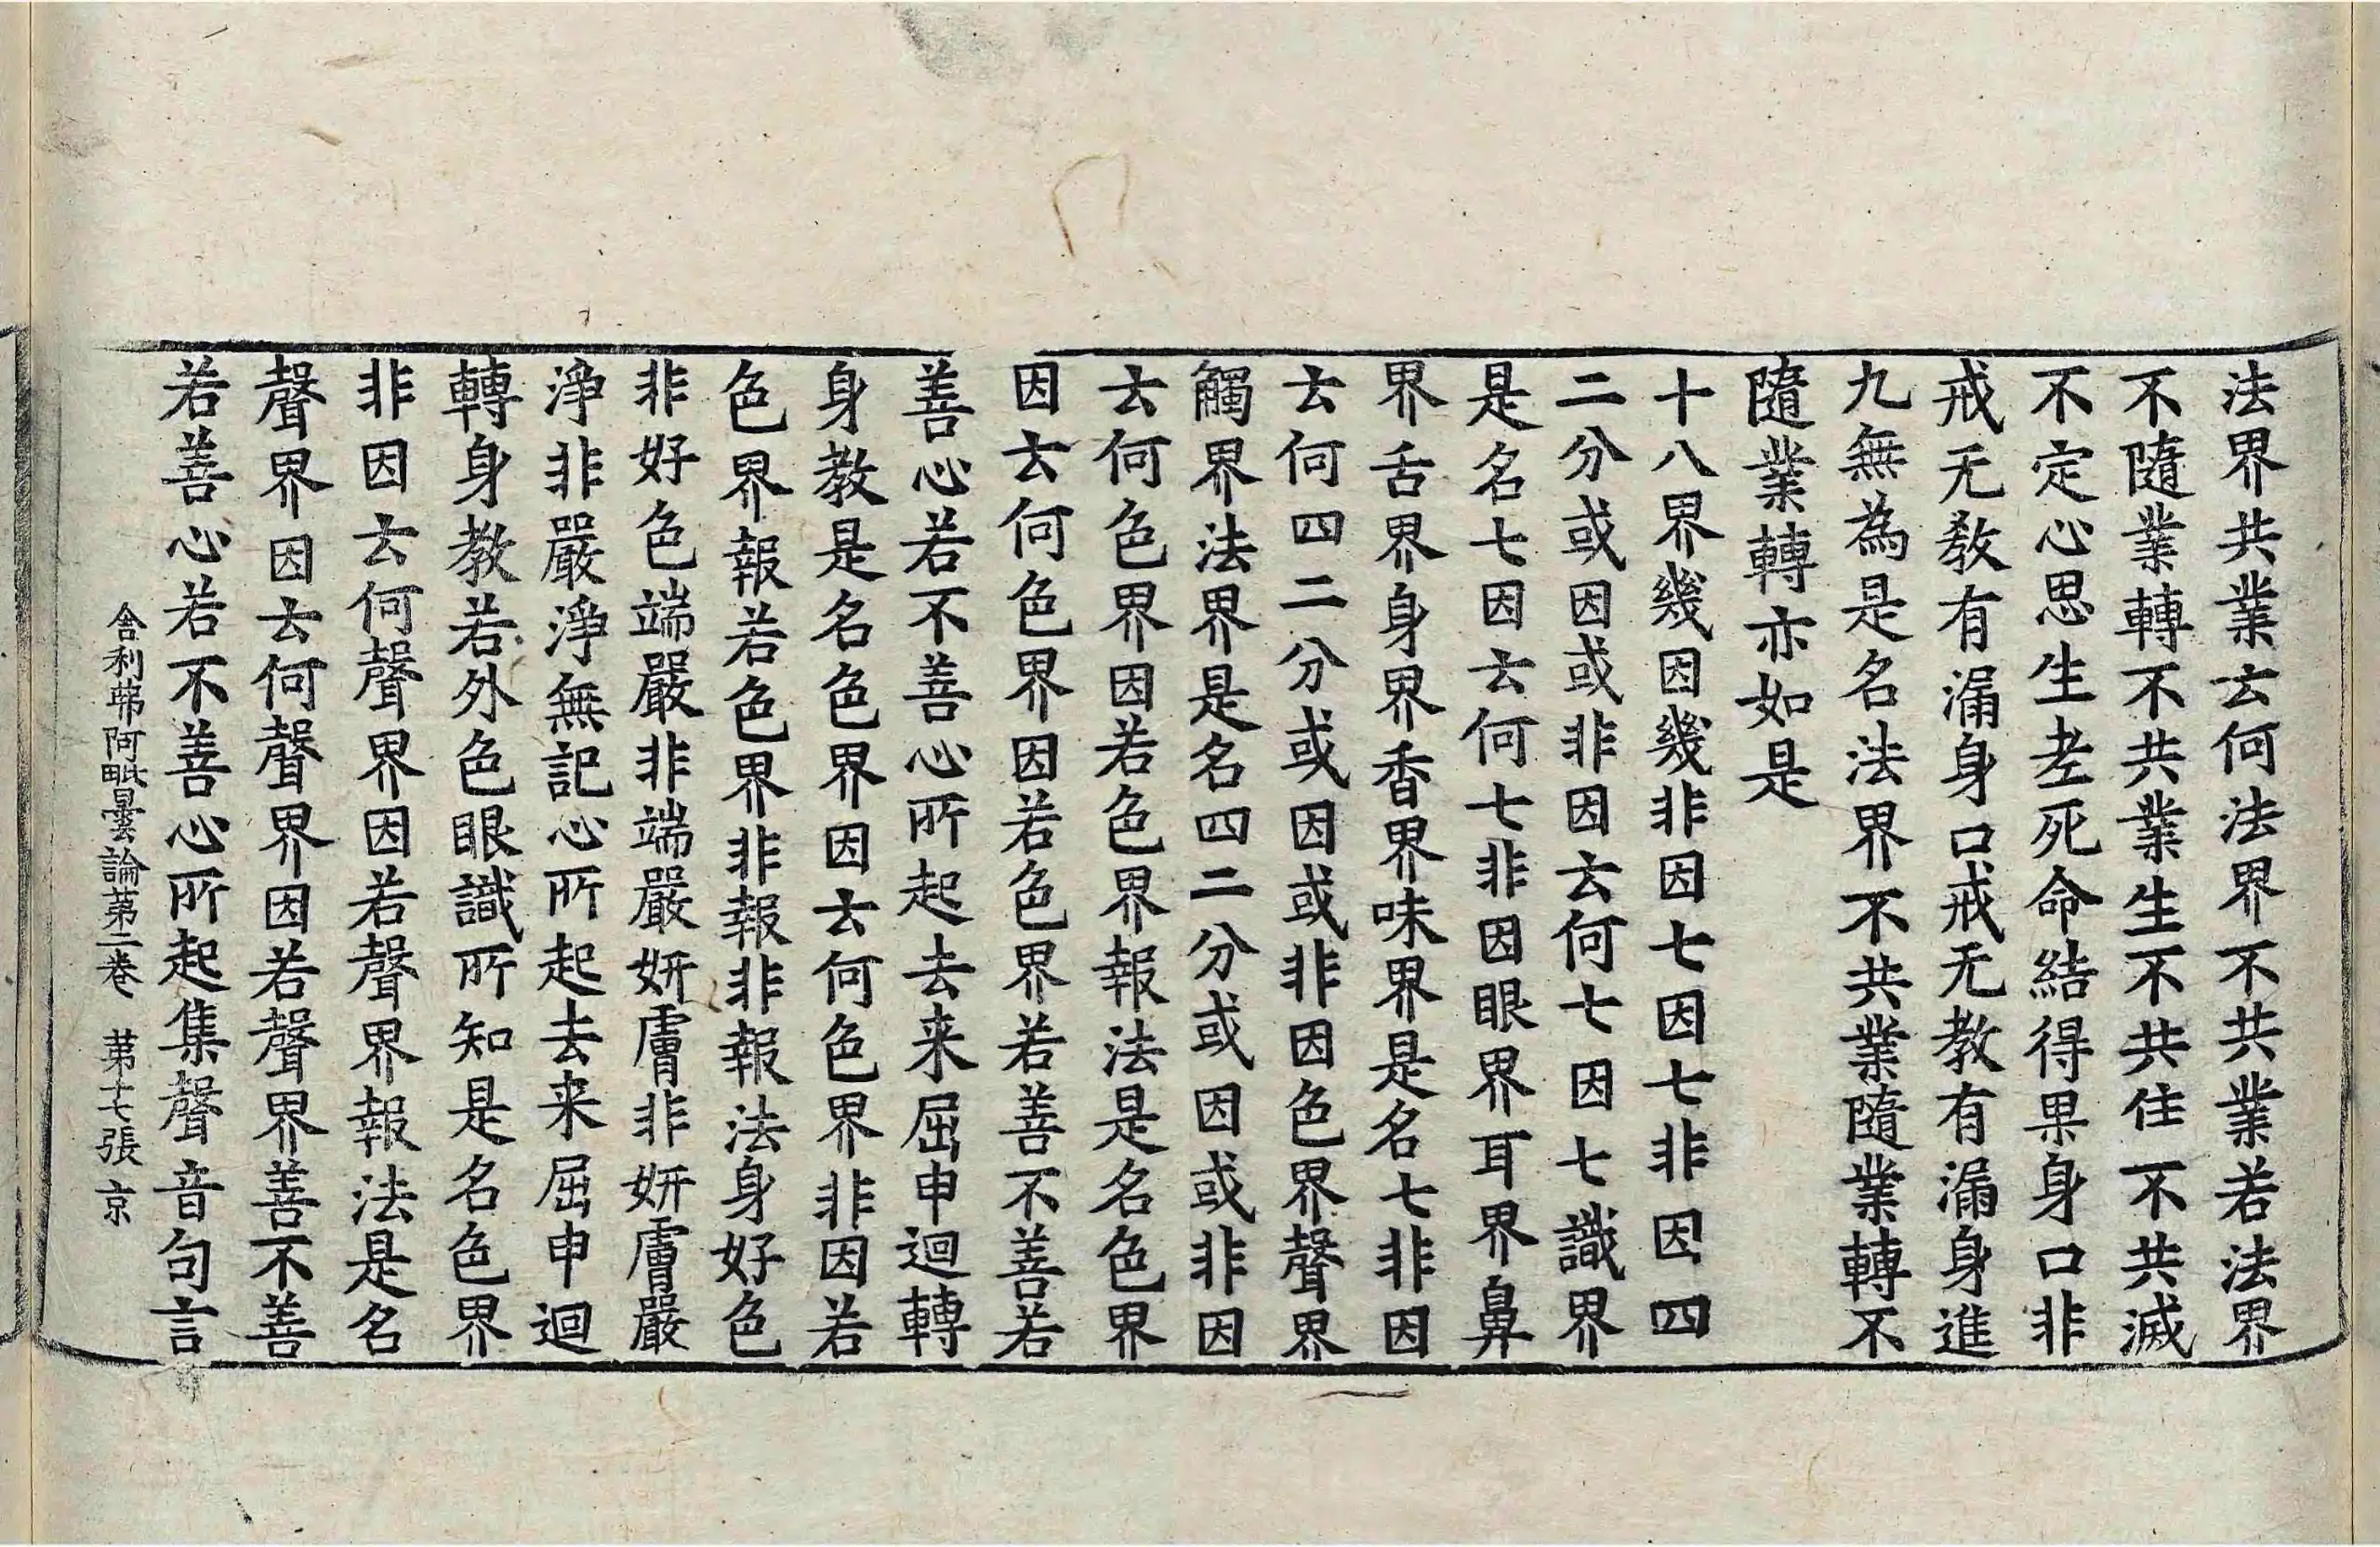 法界共業云何法界不共業若法界
不隨業轉不共業生不共住不共滅
不定心思生老死命結得果身口非
戒无教有漏身口戒无教有漏身進
九無為是名法界不共業隨業轉不
隨業轉亦如是
十八界幾因幾非因七因七非因四
二分或因或非因云何七因七識界
是名七因云何七非因眼界耳界鼻
界舌界身界香界味界是名七非因
云何四二分或因或非因色界聲界
觸界法界是名四二分或因或非因
云何色界因若色界報法是名色界
因云何色界因若色界若善不善若
善心若不善心所起去来屈申迴轉
身教是名色界因云何色界非因若
色界報若色界非報非報法身好色
非好色端嚴非端嚴妍膚非妍膚嚴
淨非嚴淨無記心所起去来屈申迴
轉身教若外色眼識所知是名色界
非因云何聲界因若聲界報法是名
聲界因云何聲界因若聲界善不善
若善心若不善心所起集聲音句言
舎利弗阿毗曇論第二卷 第十七張 京